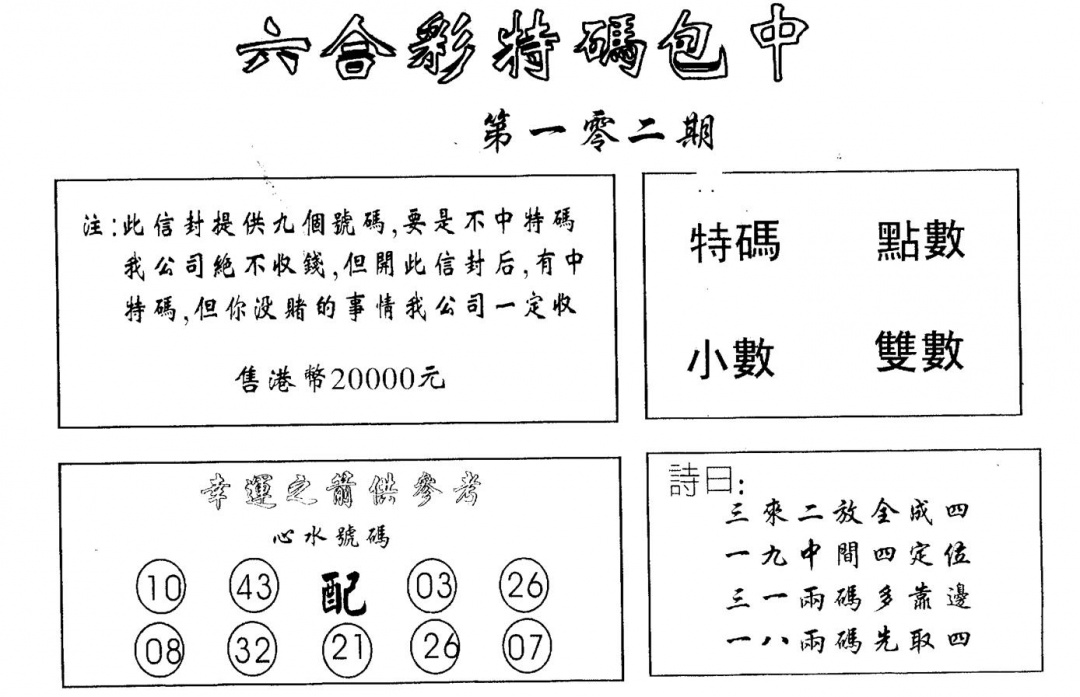 六合彩特碼包中
第一零二期
注:此信封提供九個號碼,要是不中特碼
我公司絕不收錢,但開此信封后,有中
特碼,但你没賭的事情我公司一定收
售港幣20000元
特碼 點數
小數 雙數
幸運之箭供參考
心水號碼
10 43 配 03 26
08 32 21 26 07
詩曰:
三來二放全成四
一九中間四定位
三一兩碼多靠邊
一八兩碼先取四